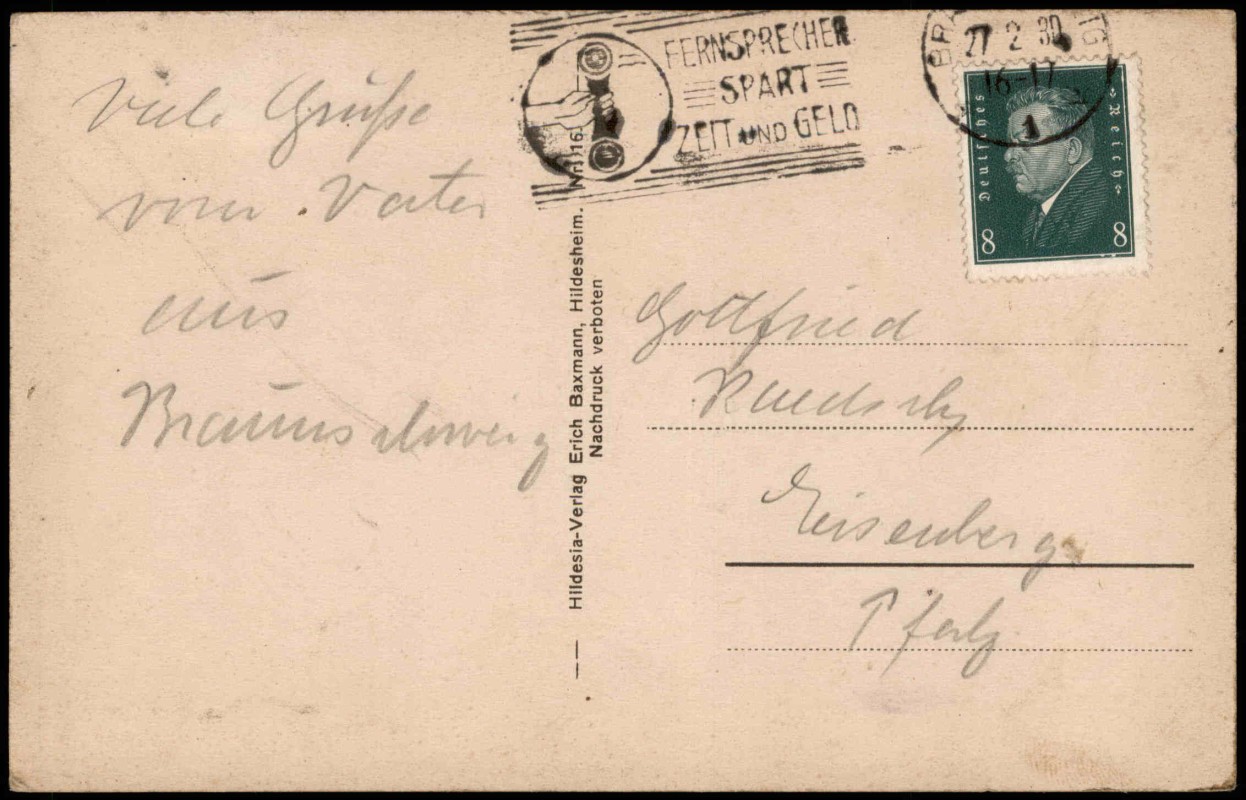 Viele Grüße
vom Vater
aus
Braunschweig
FERNSPRECHER
SPART
ZEIT UND GELD
27.2.30
16-17
1
Deutsches
Reich
8 8
Hildesia-Verlag Erich Baxmann, Hildesheim.
Nachdruck verboten
Gottfried
Eisenberg
Pfalz